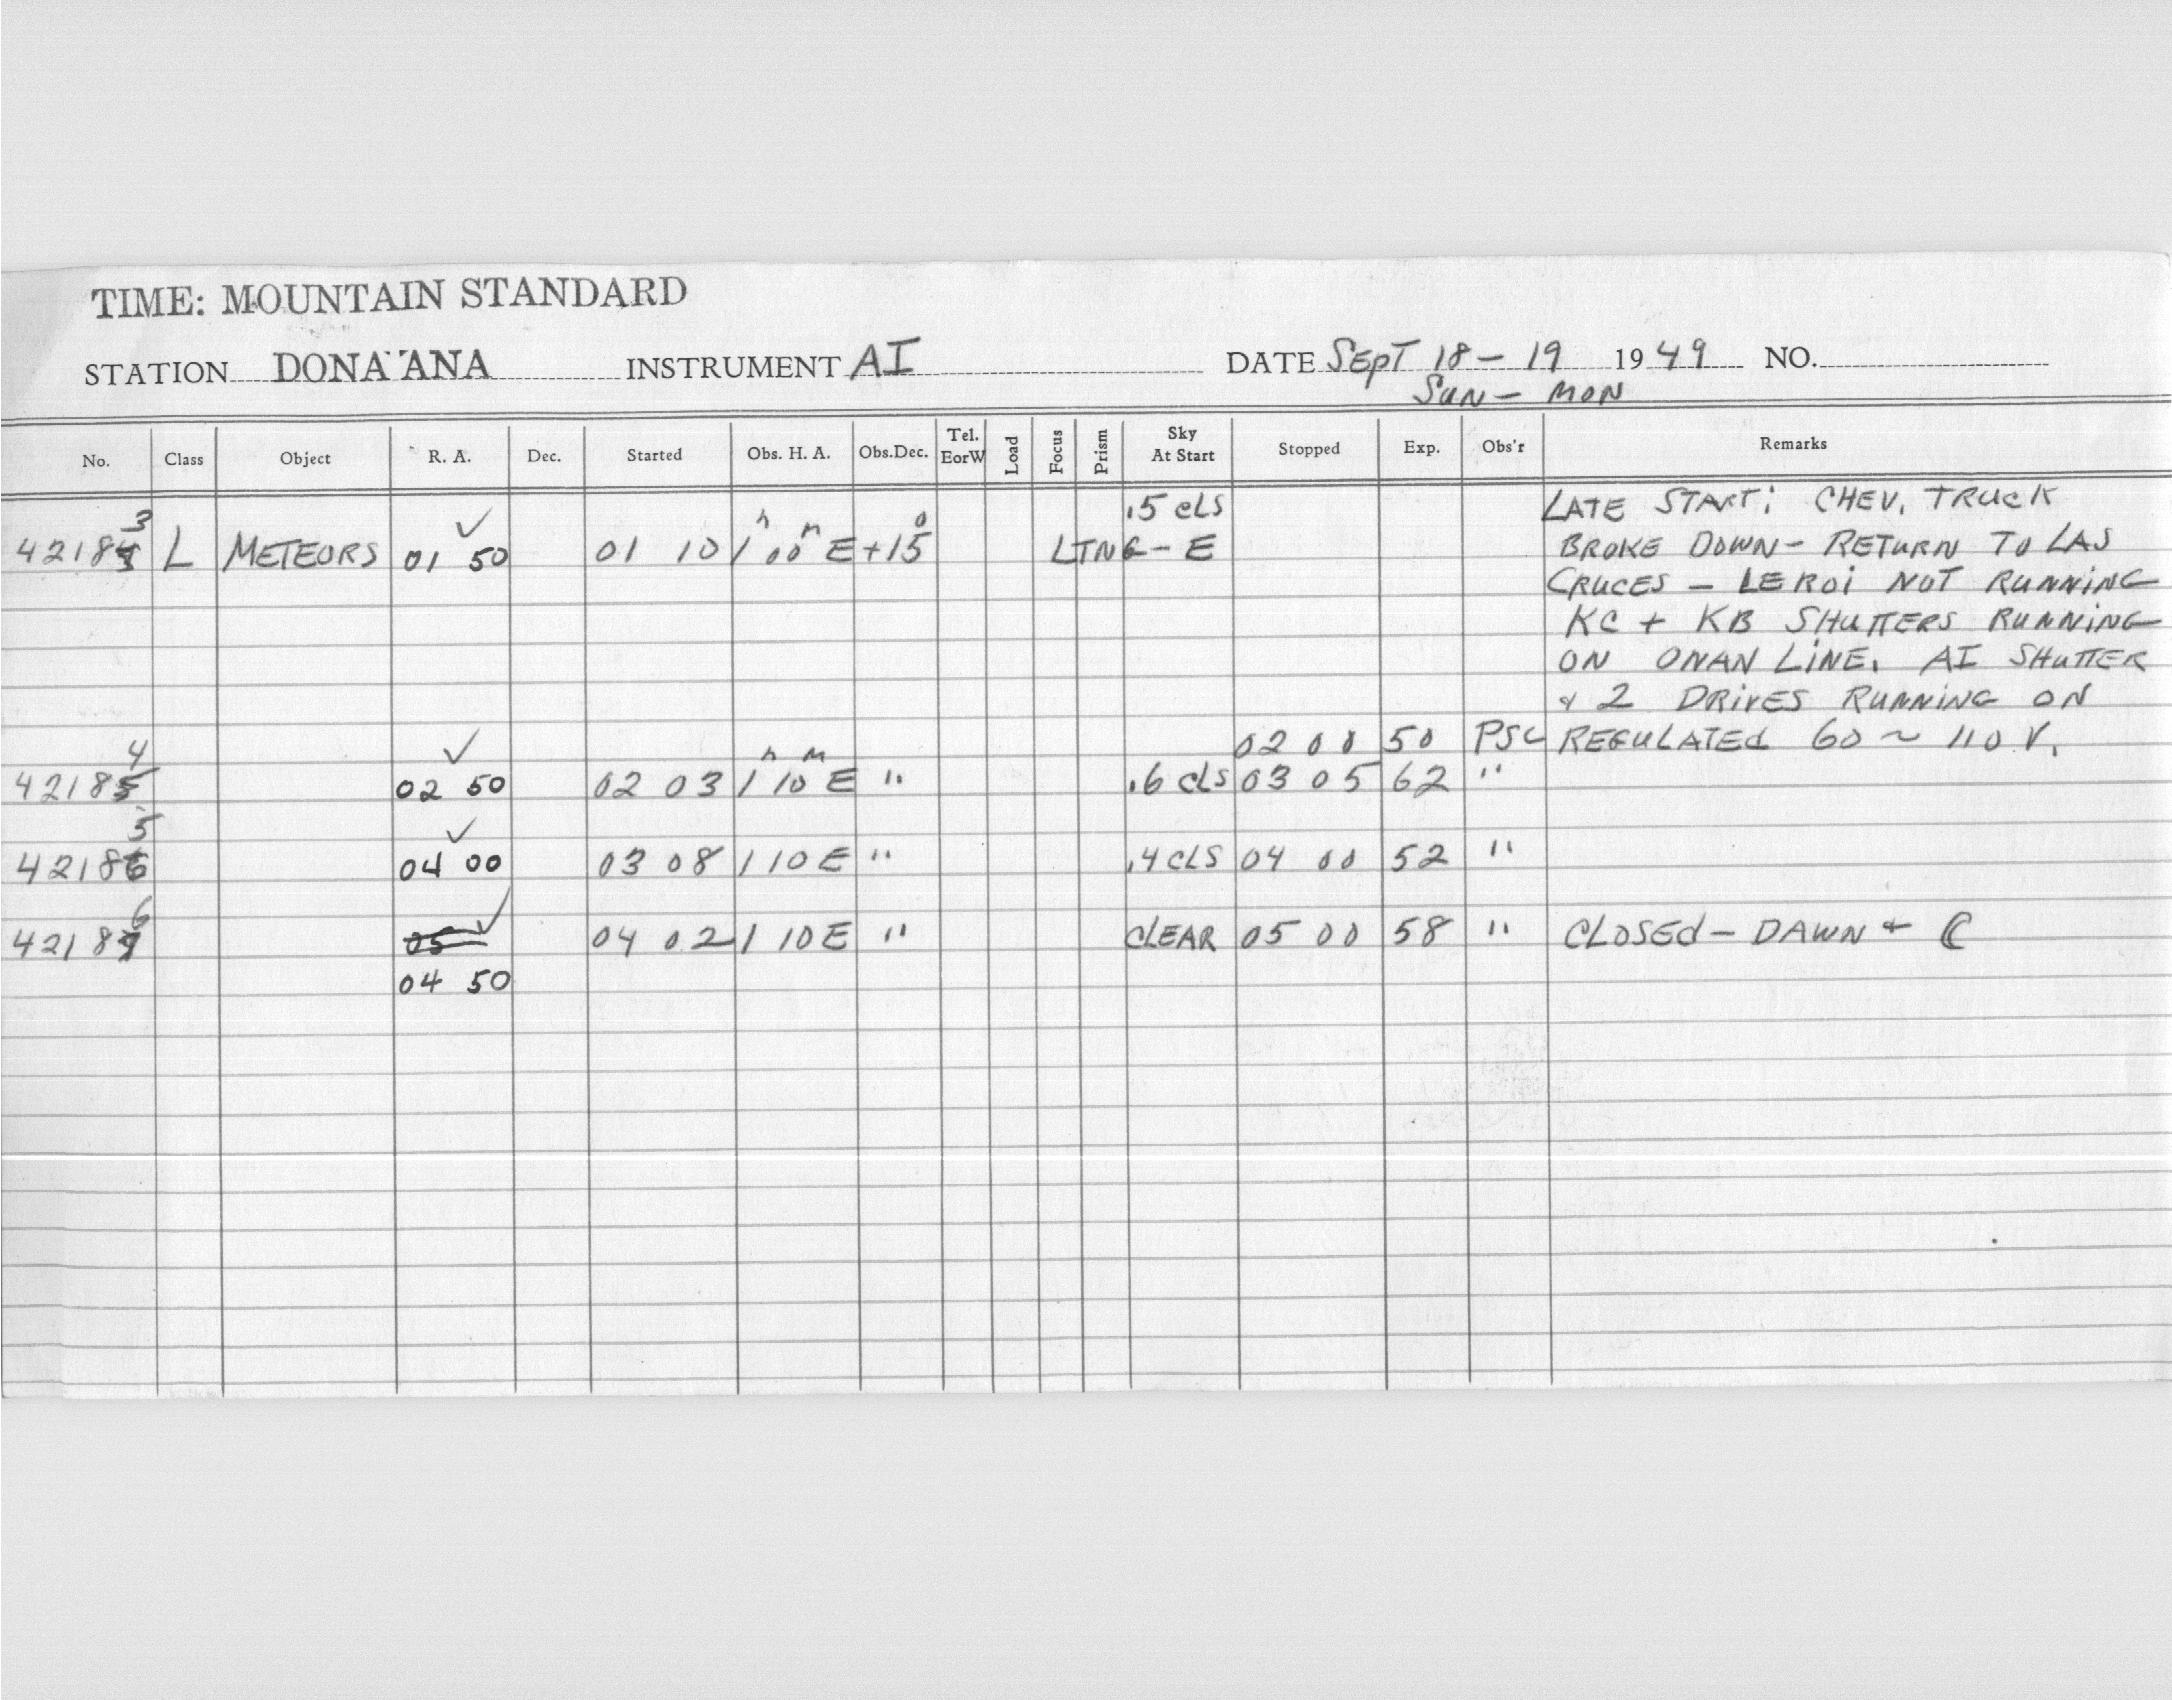 TIME: MOUNTAIN STANDARD
STATION DONA ANA INSTRUMENT AI DATE SEPT 18 – 19 1949 NO.
SUN – MON
No. Class Object R. A. Dec. Started Obs. H. A. Obs.Dec. Tel. EorW Load Focus Prism Sky At Start Stopped Exp. Obs'r Remarks
.5 CLS LATE START: CHEV. TRUCK
42183 L METEORS 01 50 ✓ 01 10 1h 00m E +15° LTNG – E BROKE DOWN – RETURN TO LAS
CRUCES – LE ROI NOT RUNNING
KC + KB SHUTTERS RUNNING
ON ONAN LINE. AI SHUTTER
+ 2 DRIVES RUNNING ON
02 00 50 PSC REGULATED 60 ~ 110 V.
42184 02 50 ✓ 02 03 1h 10m E " .6 CLS 03 05 62 "
42185 04 00 ✓ 03 08 1 10 E " .4 CLS 04 00 52 "
42186 05 ✓ 04 02 1 10 E " CLEAR 05 00 58 " CLOSED – DAWN + ☾
04 50